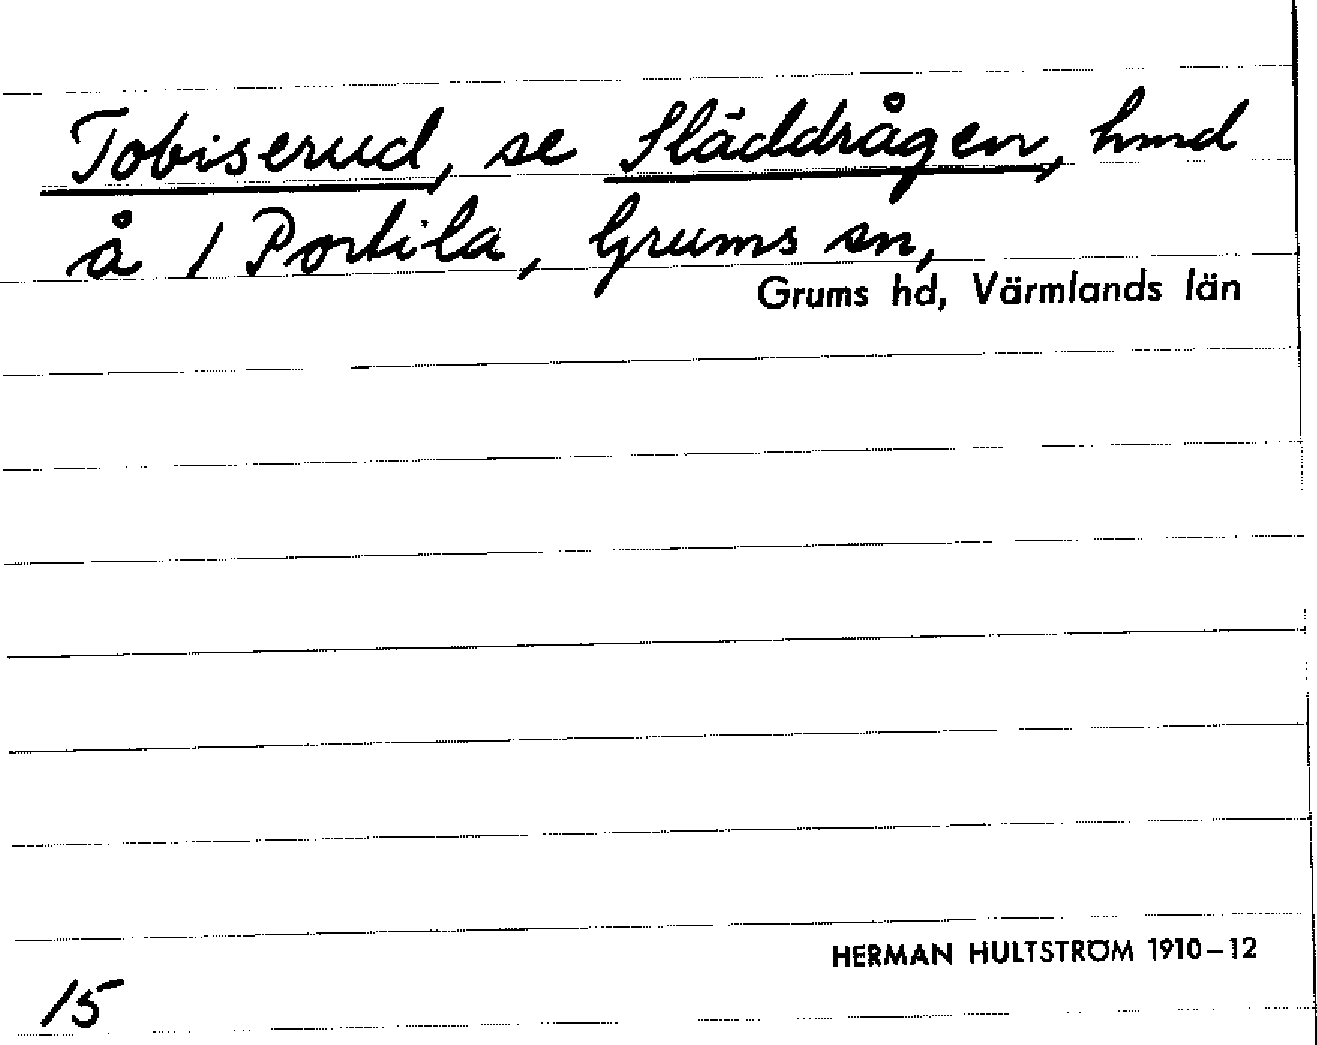 Tobiserud, se Släddrågen, hmd
å 1 Portila, Grums sn,
Grums hd, Värmlands län
HERMAN HULTSTRÖM 1910–12
15